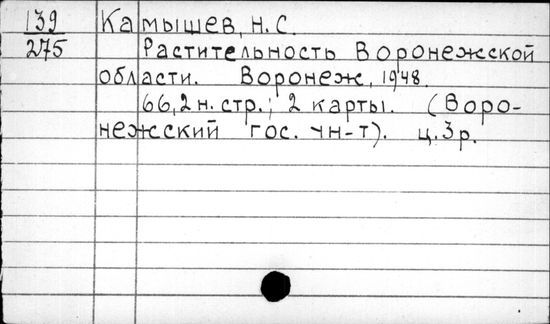 139 Камышев, Н. С.
275 Растительность Воронежской
области. Воронеж, 1948.
66, 2 н. стр.; 2 карты. (Воро-
нежский гос. ун-т). ц. 3 р.